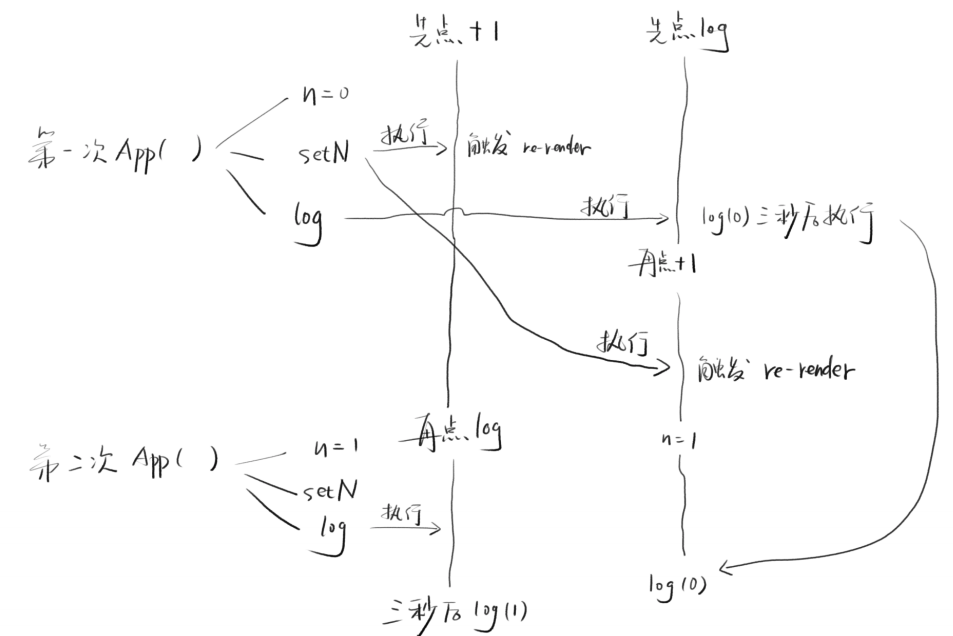 先点+1
先点log
n=0
第一次App( )
setN
执行
触发 re-render
log
执行
log(0)三秒后执行
再点+1
执行
触发 re-render
再点log
n=1
n=1
第二次App( )
setN
log
执行
log(0)
三秒后log(1)